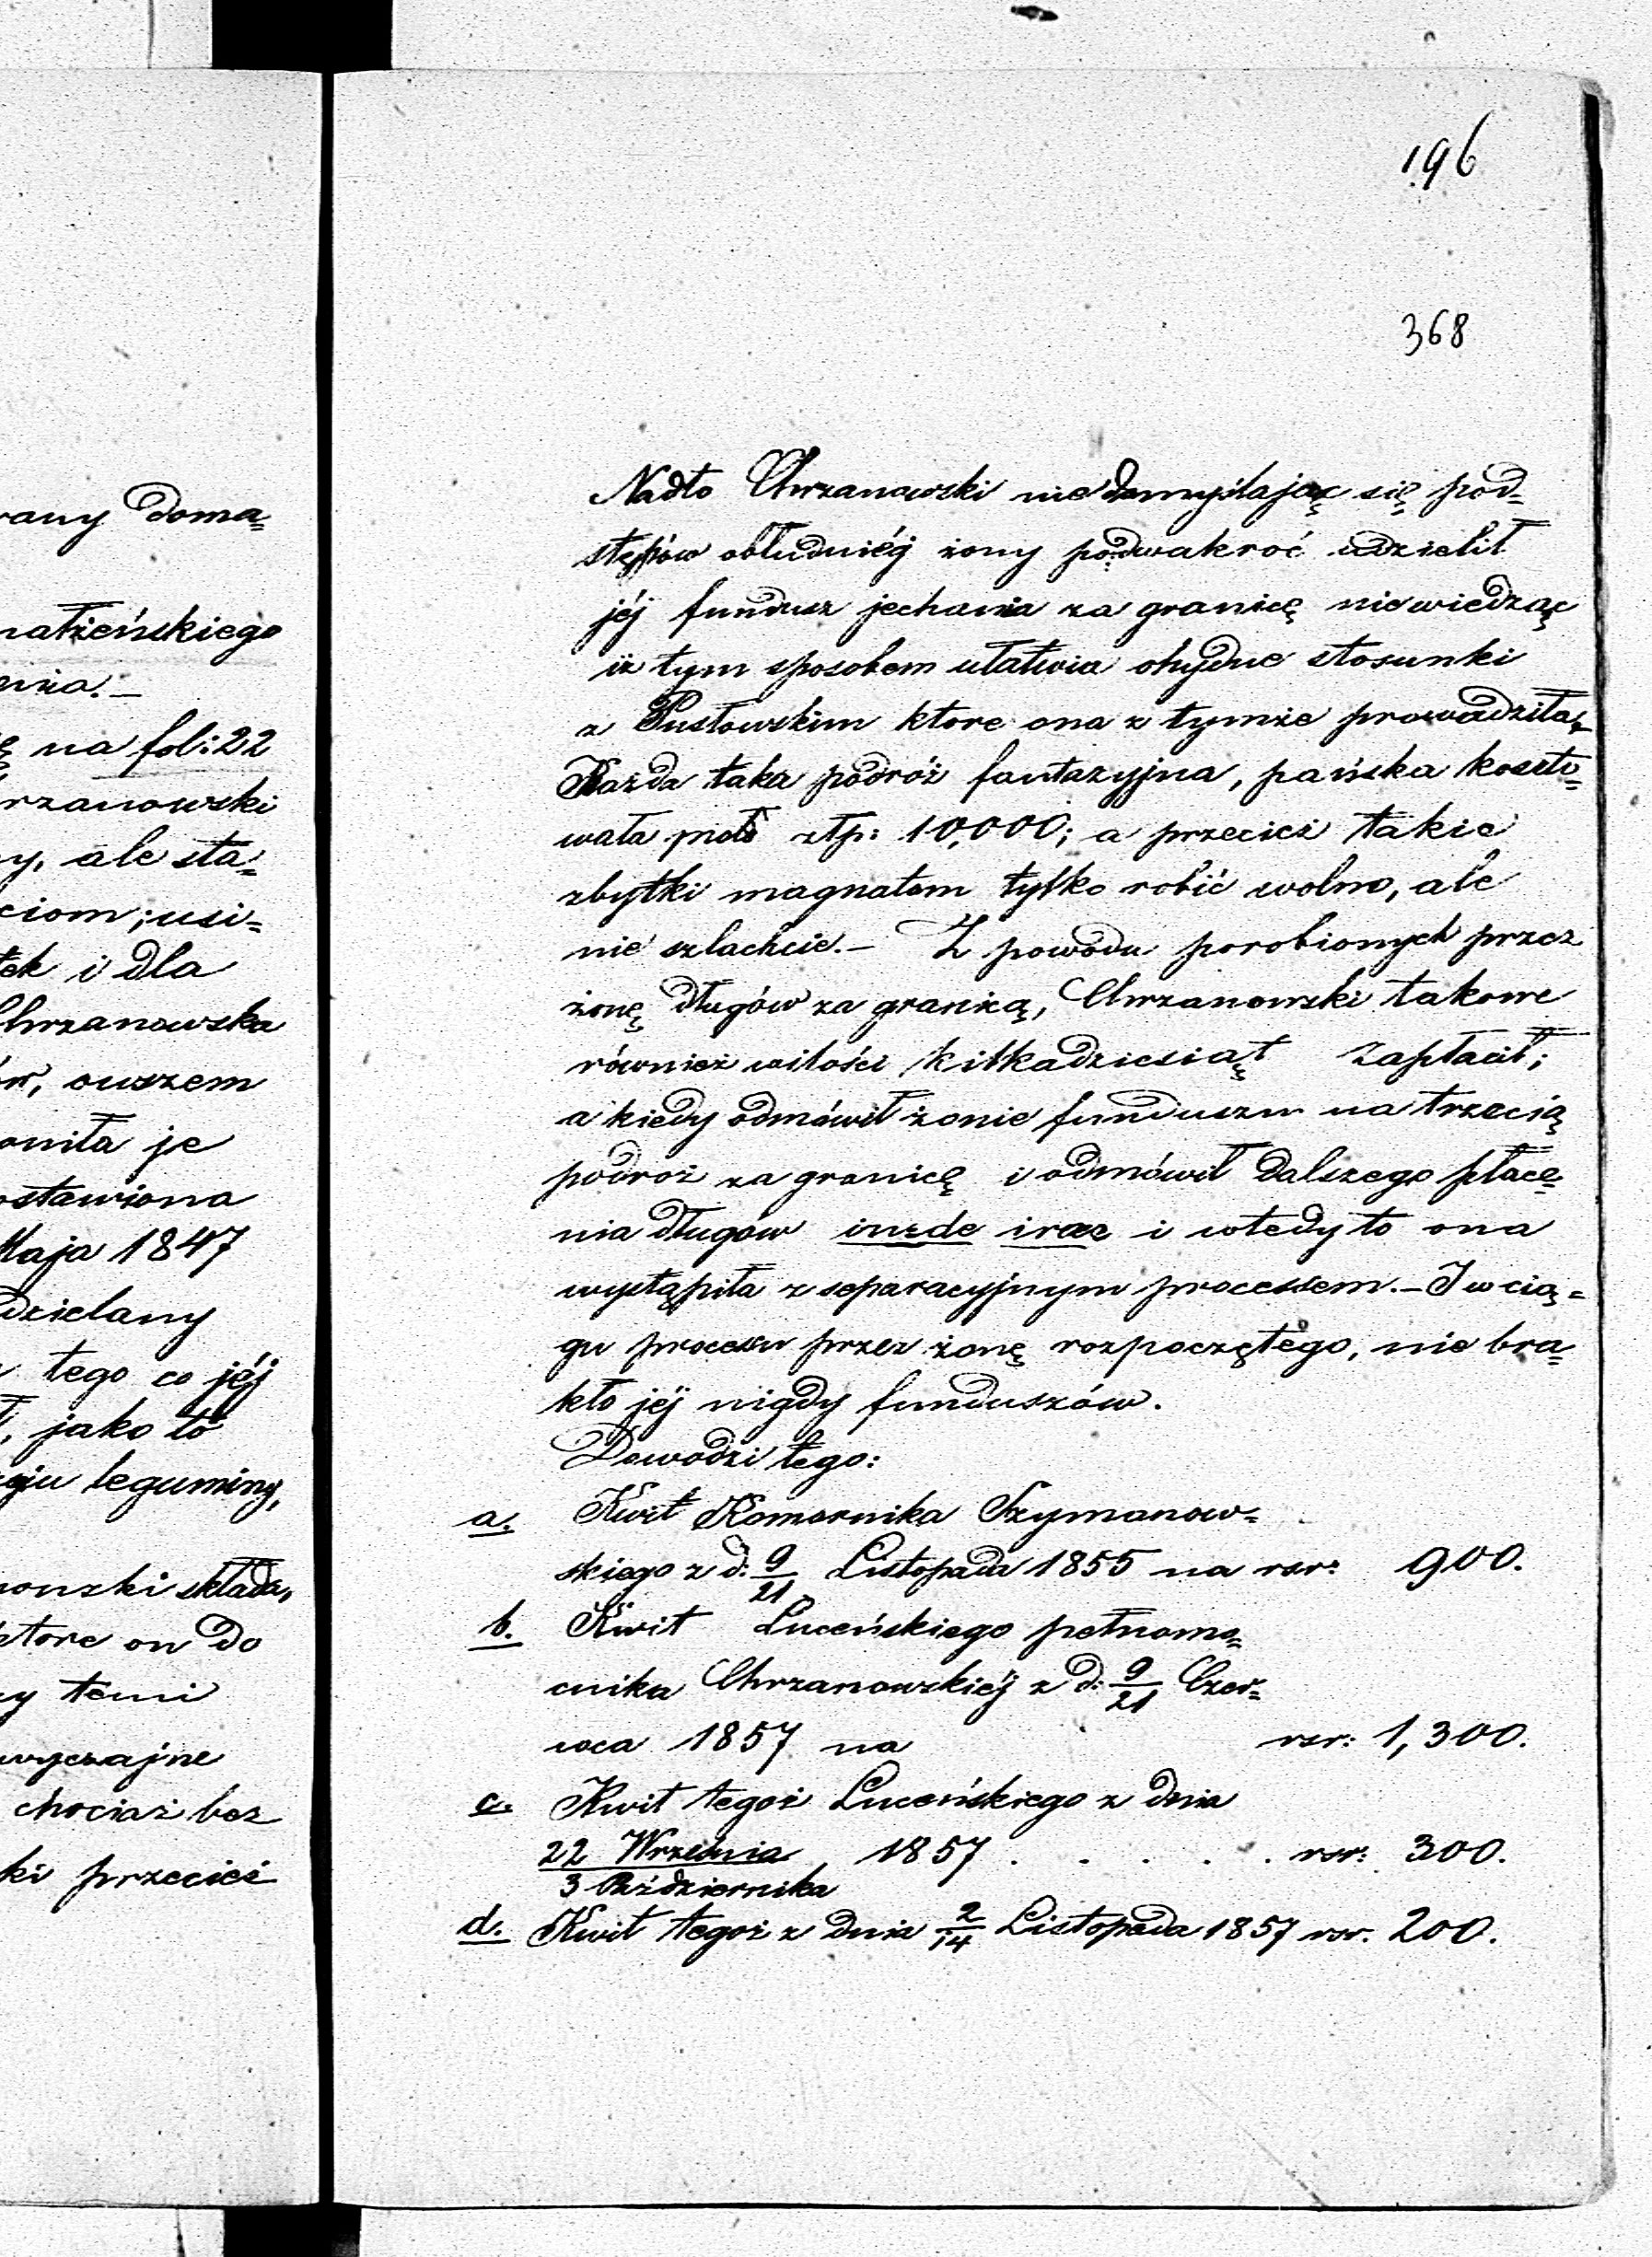 196
368
Nadto Chrzanowski niedomyślając się pod=
stępów obłudnéj żony podwakroć udzielił
jéj fundusz jechania za granicę niewiedząc
iż tym sposobem ułatwia ohydne stosunki
z Pusłowskim ktore ona z tymże prowadziła.
Każda taka podróż fantazyjna, pańska koszto=
wała złp: 10,000; a przecież takie
zbytki magnatom tylko robić wolno, ale
nie szlachcie.– Z powodu porobionych przez
żonę długów za granicą, Chrzanowski takowe
również w ilości kilkadziesiąt zapłacił;
a kiedy odmówił żonie funduszu na trzecią
podroż za granicę i odmówił dalszego płace=
nia długów inde irae i wtedy to ona
wystąpiła z separacyjnym processem.– I w cią=
gu processu przez żonę rozpoczętego, nie bra=
kło jéj nigdy funduszów.
Dowodzi tego:
a. Kwit Komornika Szymanow=
skiego z d: 9/21 Listopada 1855 na rsr: 900.
b. Kwit Luceńskiego pełnomo=
cnika Chrzanowskiéj z d: 9/21 Czer=
wca 1857 na rsr: 1,300.
c. Kwit tegoż Luceńskiego z dnia
22 Września 1857 . . . . . rsr: 300.
3 Października
d. Kwit tegoż z dnia 2/14 Listopada 1857 rsr. 200.
any doma=
małżeńskiego
na fol: 22
rzanowski
y, ale sta=
ciom; usi=
tek i dla
Chrzanowska
owszem
oniła je
ostawiona
Maja 1847
dzielany
tego co jéj
, jako to
leguminy,
składa,
ktore on do
y temi
wyczajne
chociaż bez
ki przecież